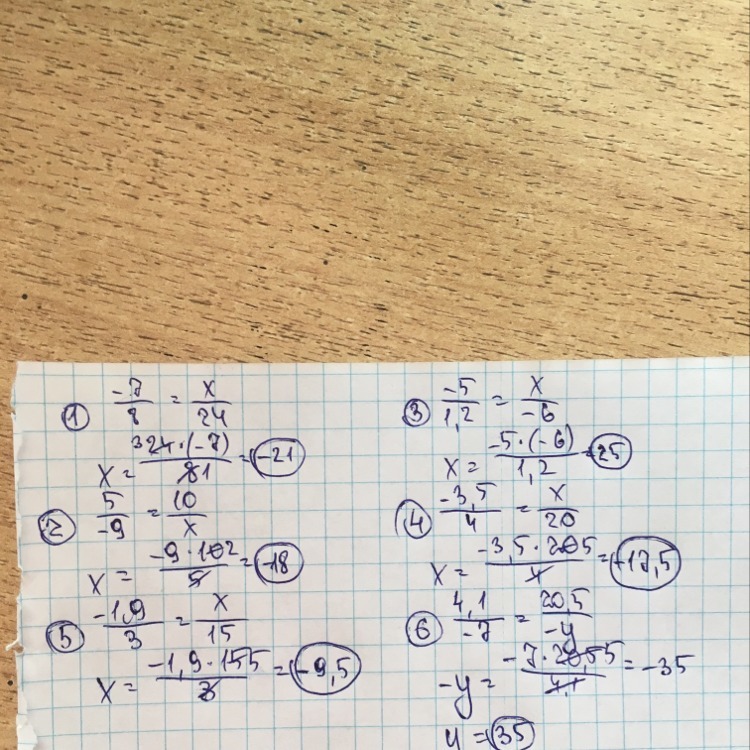 ① -7/8 = x/24
x = 324·(-7)/81 = -21
② 5/-9 = 10/x
x = -9·102/5 = -18
⑤ -1,9/3 = x/15
x = -1,9·155/3 = -9,5
③ -5/1,2 = x/-6
x = -5·(-6)/1,2 = 25
④ -3,5/4 = x/20
x = -3,5·205/4 = -17,5
⑥ 4,1/-7 = 20,5/-y
-y = -7·20,55/4,1 = -35
y = 35